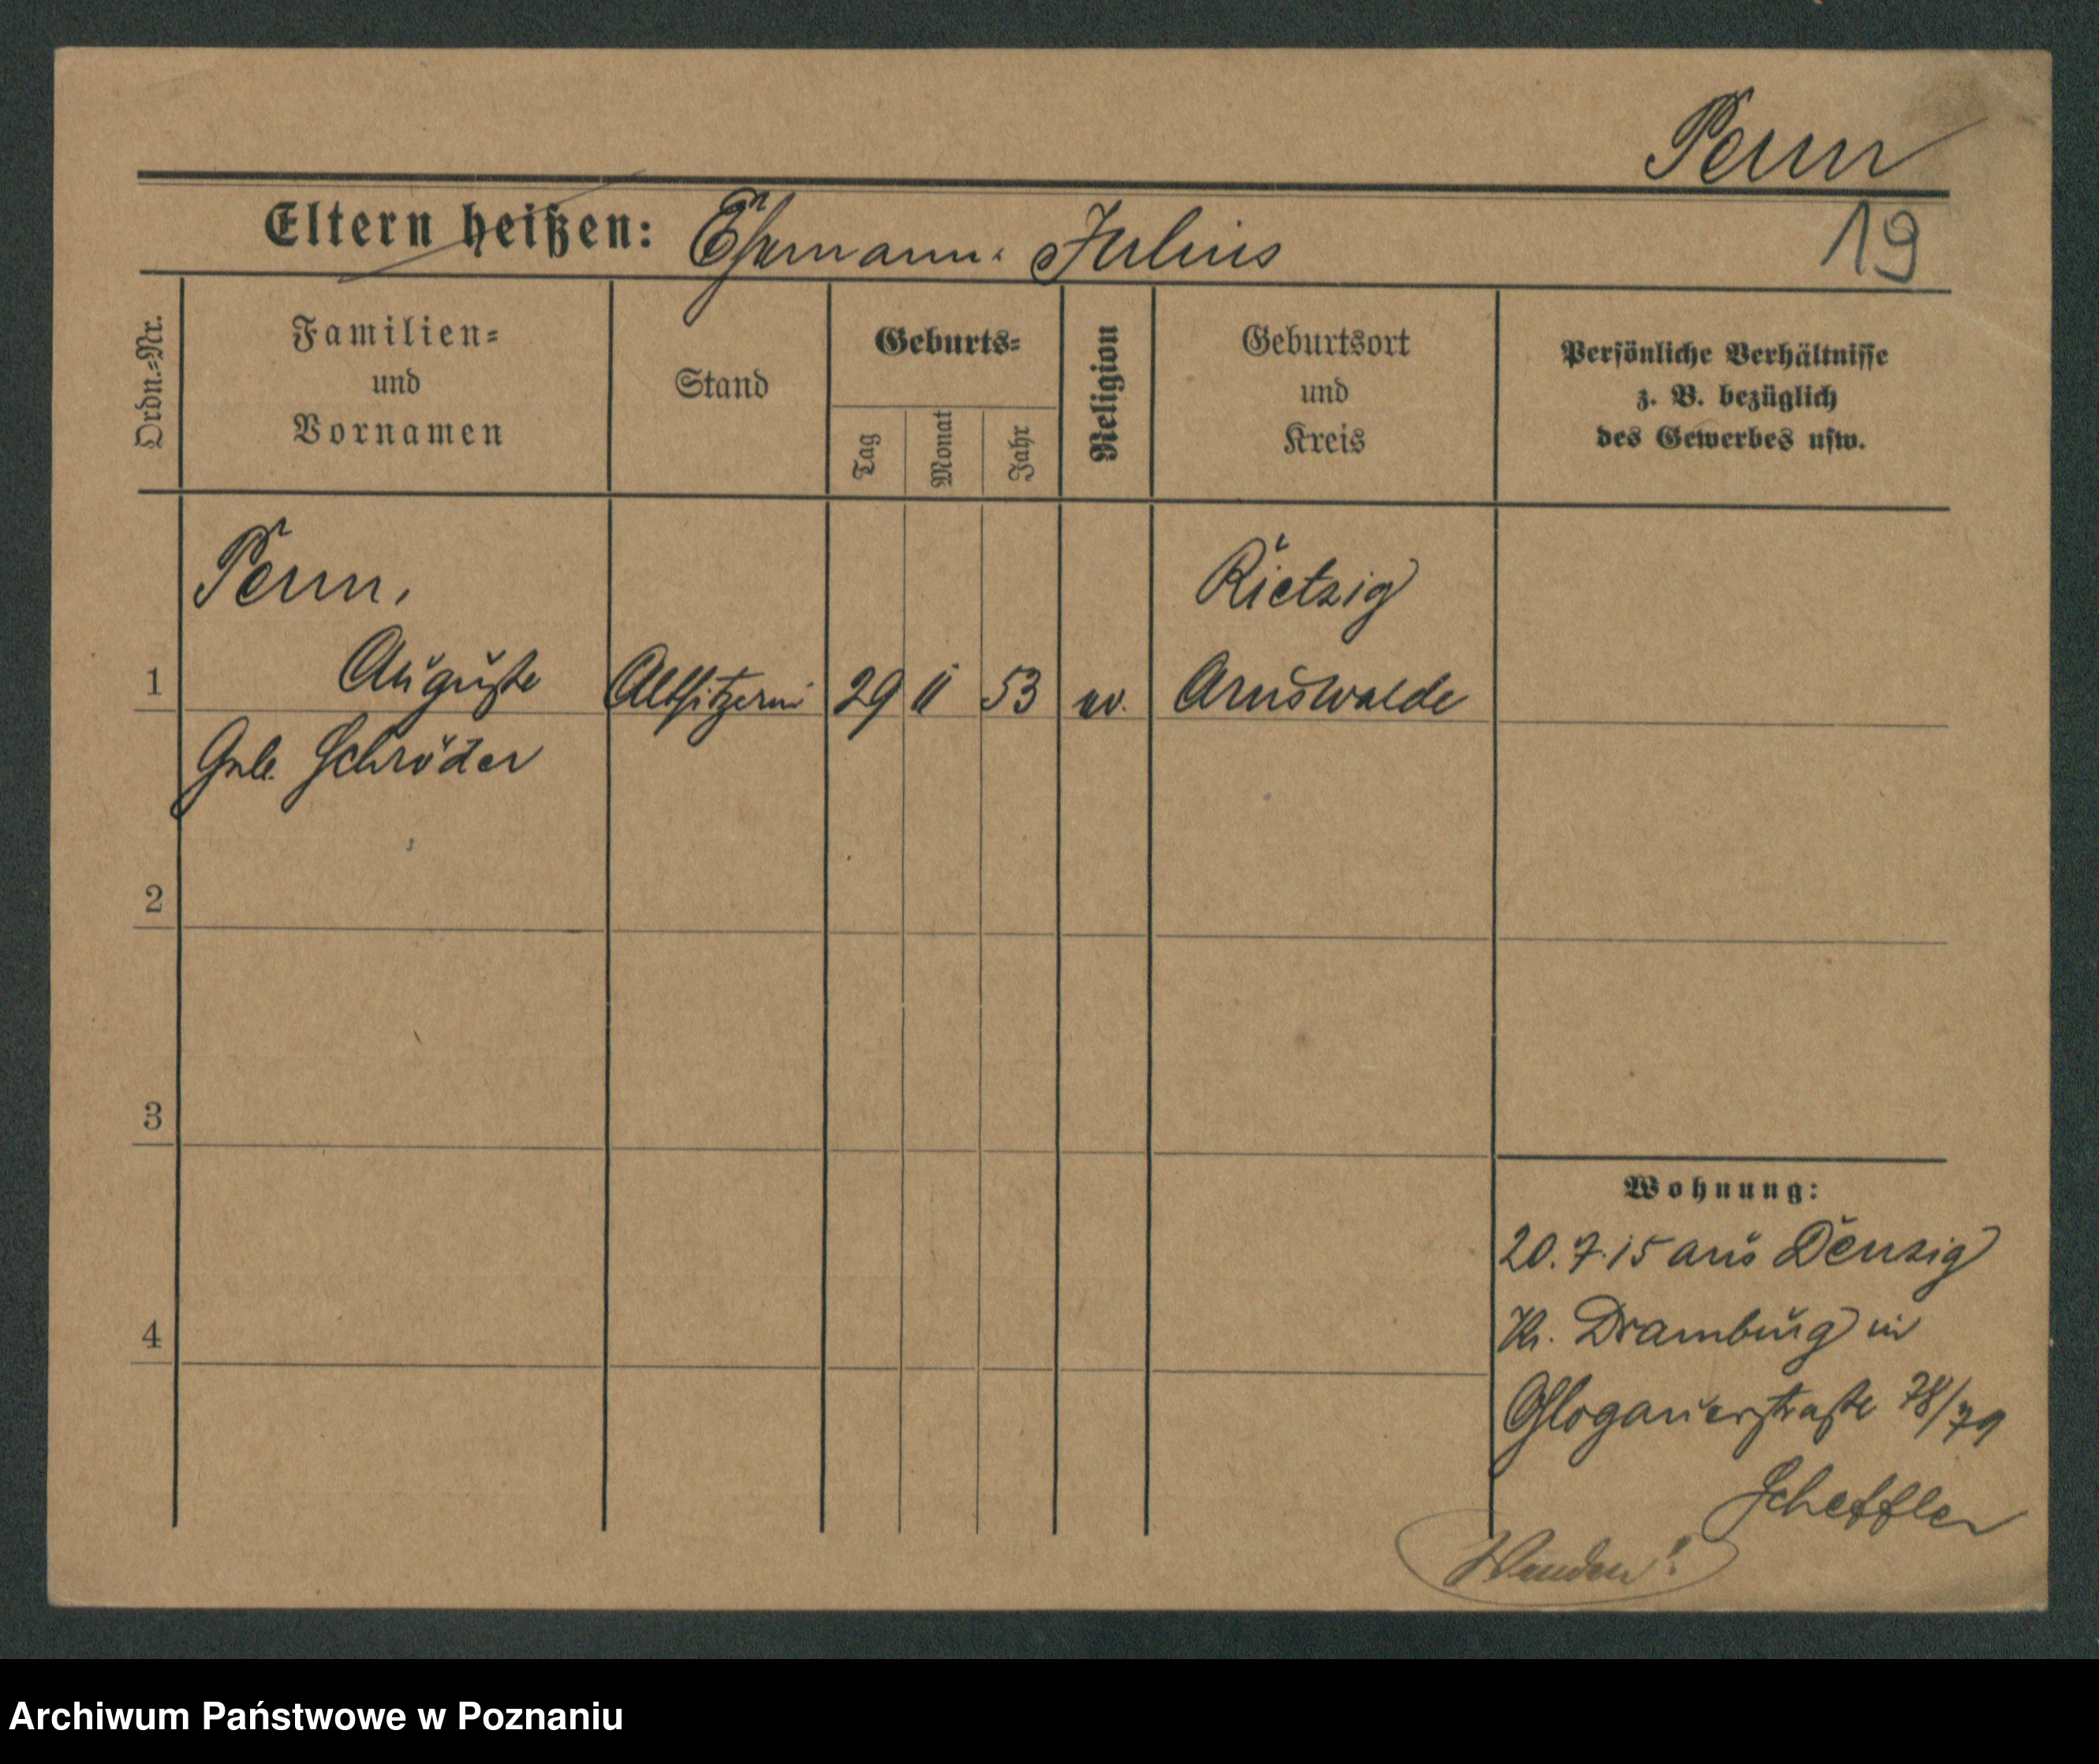 Penn
Eltern heißen: Ehemann: Julius
19
Ordn.=Nr.
Familien=
und
Vornamen
Stand
Geburts=
Tag
Monat
Jahr
Religion
Geburtsort
und
Kreis
Persönliche Verhältnisse
z. B. bezüglich
des Gewerbes usw.
Penn,
Rietzig
1 Auguste Altsitzerin 29 11 53 ev. Arnswalde
Geb. Schröder
2
3
4
Wohnung:
20.7.15 aus Denzig
Kr. Dramburg in
Glogauerstraße 78/79
Scheffler
Wenden!
Archiwum Państwowe w Poznaniu